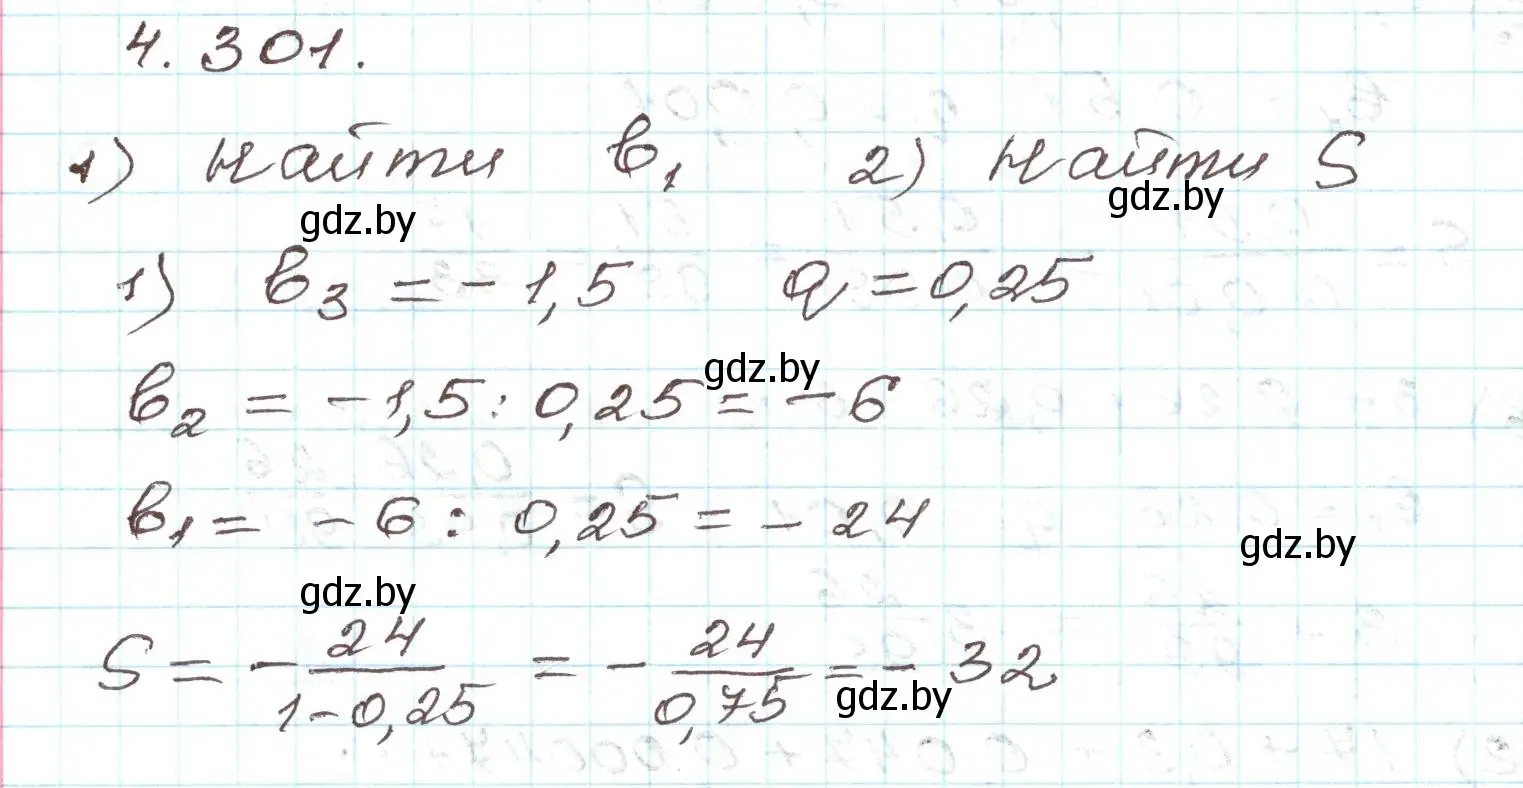 4.301.
1) Найти b₁ 2) Найти S
gdz.by gdz.by
1) b₃ = -1,5 q = 0,25
gdz.by
b₂ = -1,5 : 0,25 = -6
b₁ = -6 : 0,25 = -24
gdz.by
gdz.by
S = - 24/(1-0,25) = - 24/0,75 = - 32
gdz.by